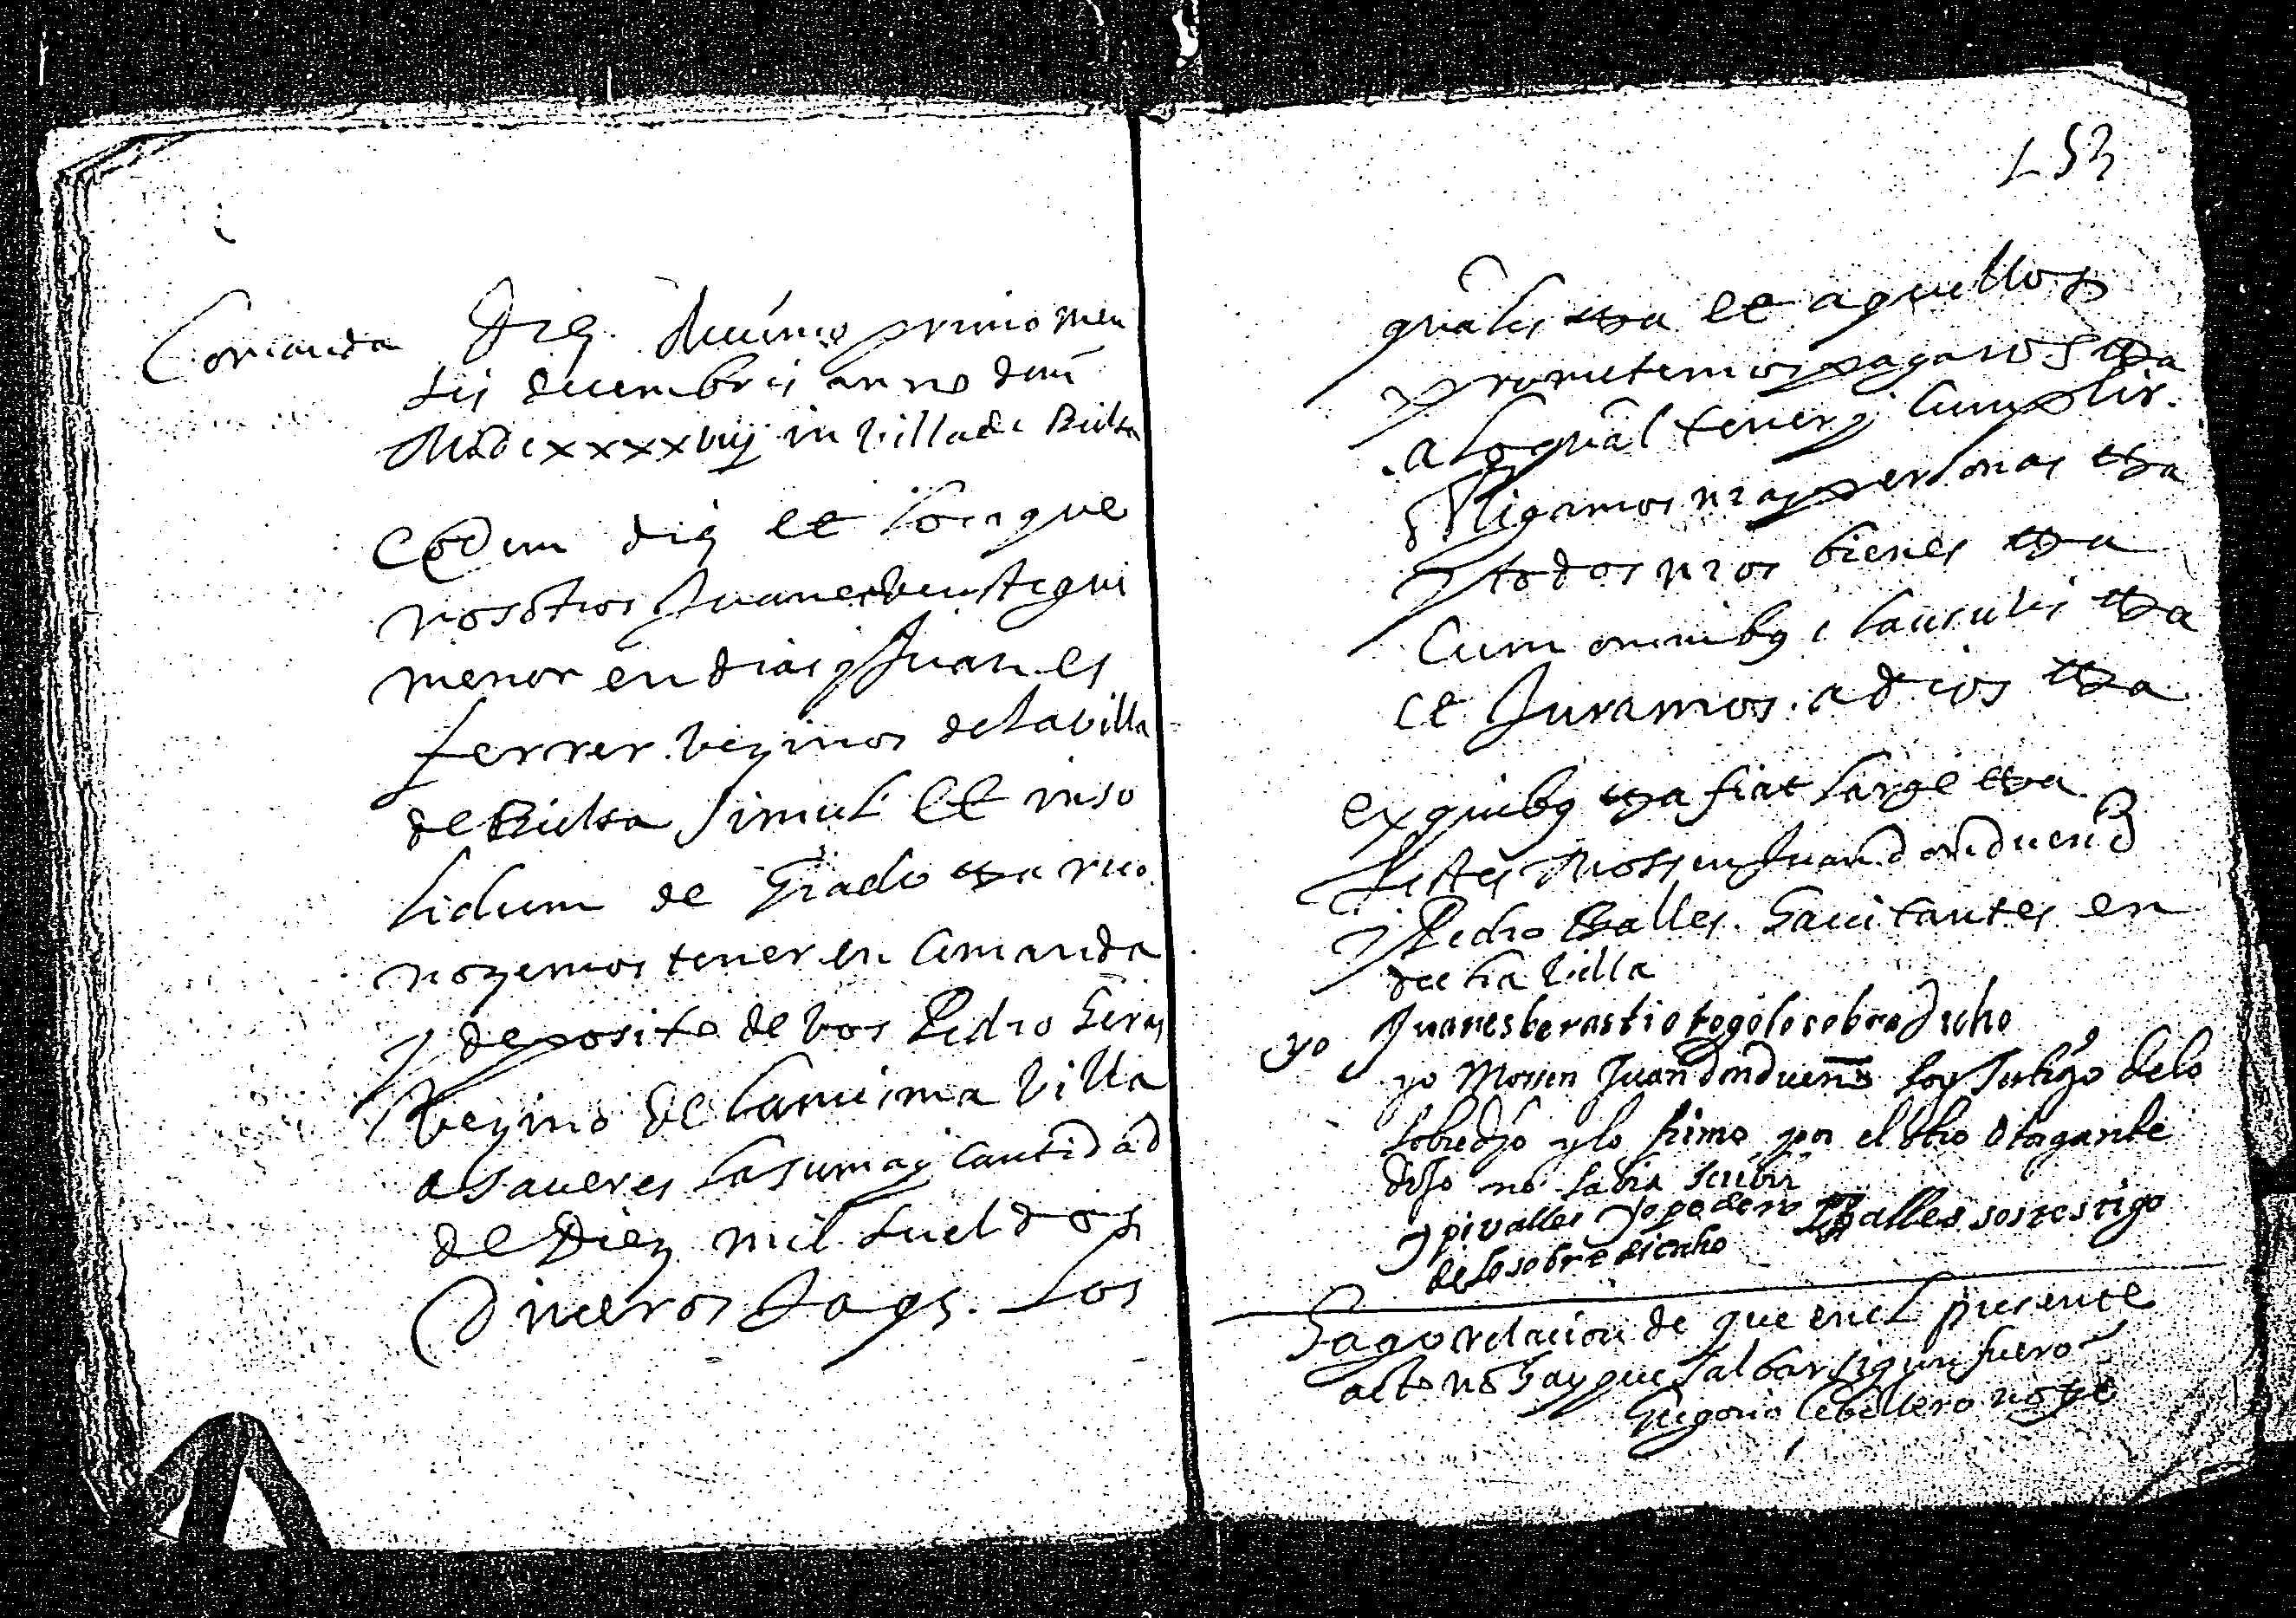 Comanda
Die decimo primo men
sis decembris anno dom
MDCxxxxviij in villa de Bielsa
Eodem die et loco que
nosotros Juanes
menor en dias y Juan es
ferrer vezinos de la villa
de Bielsa simul et inso
lidum de grado etta reco
nozemos tener en comanda
y deposito de vos Pedro
vezino de la misma villa
a saver es la suma y cantidad
de Diez mil sueldos
Dineros Jaqs. los
153
quales etta et aquellos
prometemos pagaros etta
a lo qual tener y cumplir
obligamos nras personas etta
y todos nros bienes etta
Cum omnibus clausulis etta
et Juramos a dios etta
ex quibus etta fiat large etta
testes Mossen Juan
y Pedro Balles havitantes en
dicha villa
yo Juanes otogo lo sobre dicho
yo Mossen Juan soy testigo de lo
sobredjo y lo firmo por el otro otogante
dijo no sabia scribir
y pivalles yo pedero Balles sos testigo
de lo sobre dicho
Hago relacion de que en el presente
acto no hay que salvar sigun fuero
Gregorio Cebollero notto